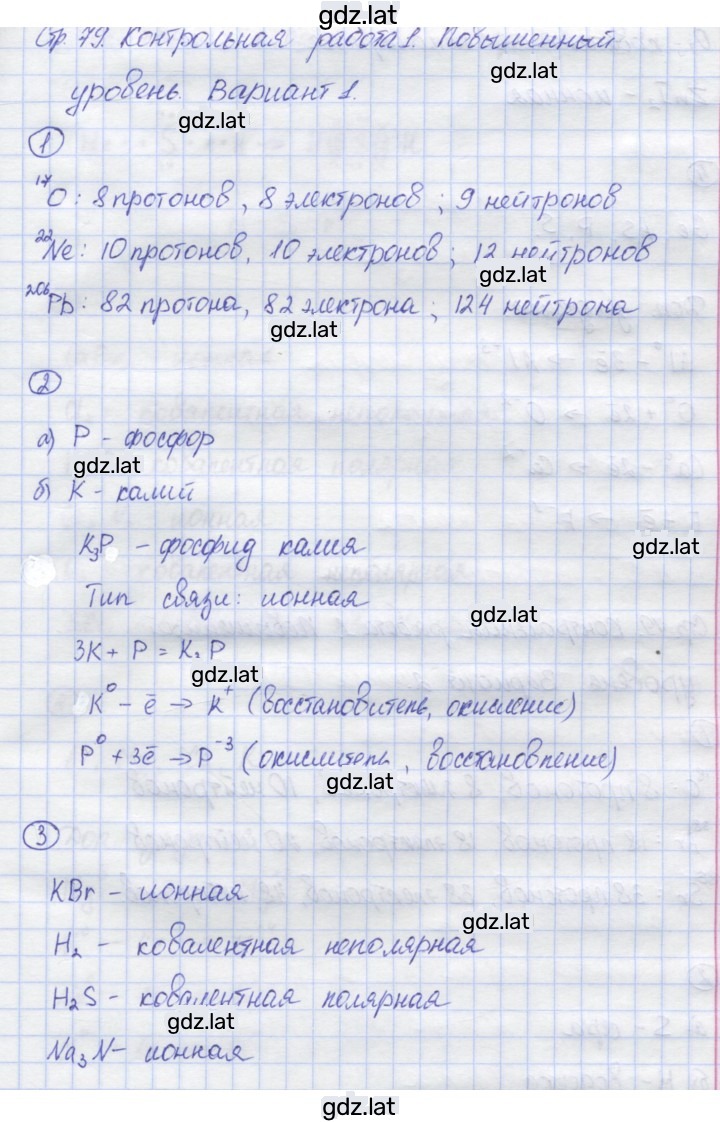 gdz.lat
Стр. 79. Контрольная работа 1. Повышенный
gdz.lat
уровень. Вариант 1.
gdz.lat
1
¹⁷O: 8 протонов, 8 электронов; 9 нейтронов
²²Ne: 10 протонов, 10 электронов; 12 нейтронов
gdz.lat
²⁰⁶Pb: 82 протона, 82 электрона; 124 нейтрона
gdz.lat
2
а) P - фосфор
gdz.lat
б) K - калий
K₃P - фосфид калия
gdz.lat
Тип связи: ионная
gdz.lat
3K + P = K₃P
gdz.lat
K⁰ - ē → K⁺ (восстановитель, окисление)
P⁰ + 3ē → P⁻³ (окислитель, восстановление)
gdz.lat
3
KBr - ионная
gdz.lat
H₂ - ковалентная неполярная
H₂S - ковалентная полярная
gdz.lat
Na₃N - ионная
gdz.lat